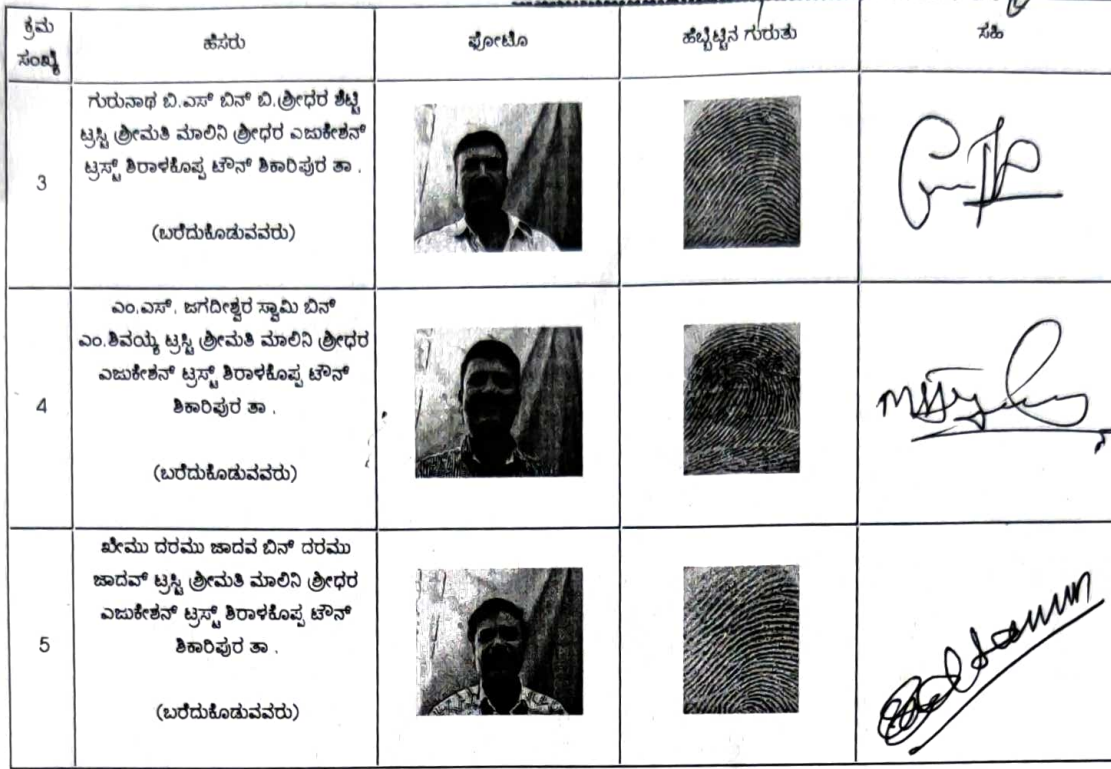 ಕ್ರಮ
ಸಂಖ್ಯೆ
ಹೆಸರು
ಫೋಟೊ
ಹೆಬ್ಬೆಟ್ಟಿನ ಗುರುತು
ಸಹಿ
3
ಗುರುನಾಥ ಬಿ.ಎಸ್ ಬಿನ್ ಬಿ.ಶ್ರೀಧರ ಶೆಟ್ಟಿ
ಟ್ರಸ್ಟಿ ಶ್ರೀಮತಿ ಮಾಲಿನಿ ಶ್ರೀಧರ ಎಜುಕೇಶನ್
ಟ್ರಸ್ಟ್ ಶಿರಾಳಕೊಪ್ಪ ಟೌನ್ ಶಿಕಾರಿಪುರ ತಾ .
(ಬರೆದುಕೊಡುವವರು)
4
ಎಂ.ಎಸ್. ಜಗದೀಶ್ವರ ಸ್ವಾಮಿ ಬಿನ್
ಎಂ.ಶಿವಯ್ಯ ಟ್ರಸ್ಟಿ ಶ್ರೀಮತಿ ಮಾಲಿನಿ ಶ್ರೀಧರ
ಎಜುಕೇಶನ್ ಟ್ರಸ್ಟ್ ಶಿರಾಳಕೊಪ್ಪ ಟೌನ್
ಶಿಕಾರಿಪುರ ತಾ .
(ಬರೆದುಕೊಡುವವರು)
5
ಖೇಮು ದರಮು ಜಾದವ ಬಿನ್ ದರಮು
ಜಾದವ್ ಟ್ರಸ್ಟಿ ಶ್ರೀಮತಿ ಮಾಲಿನಿ ಶ್ರೀಧರ
ಎಜುಕೇಶನ್ ಟ್ರಸ್ಟ್ ಶಿರಾಳಕೊಪ್ಪ ಟೌನ್
ಶಿಕಾರಿಪುರ ತಾ .
(ಬರೆದುಕೊಡುವವರು)